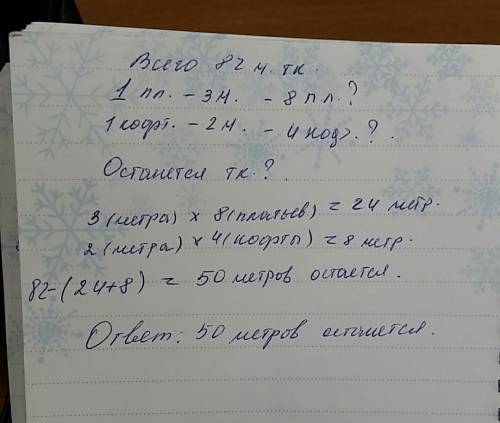 Всего 82 м. тк.
1 пл. - 3 м. - 8 пл.?
1 кофт. - 2 м. - 4 коф.?
Останется тк.?
3 (метра) × 8 (платьев) = 24 метр.
2 (метра) × 4 (кофты) = 8 метр.
82-(24+8) = 50 метров остается.
Ответ: 50 метров останется.